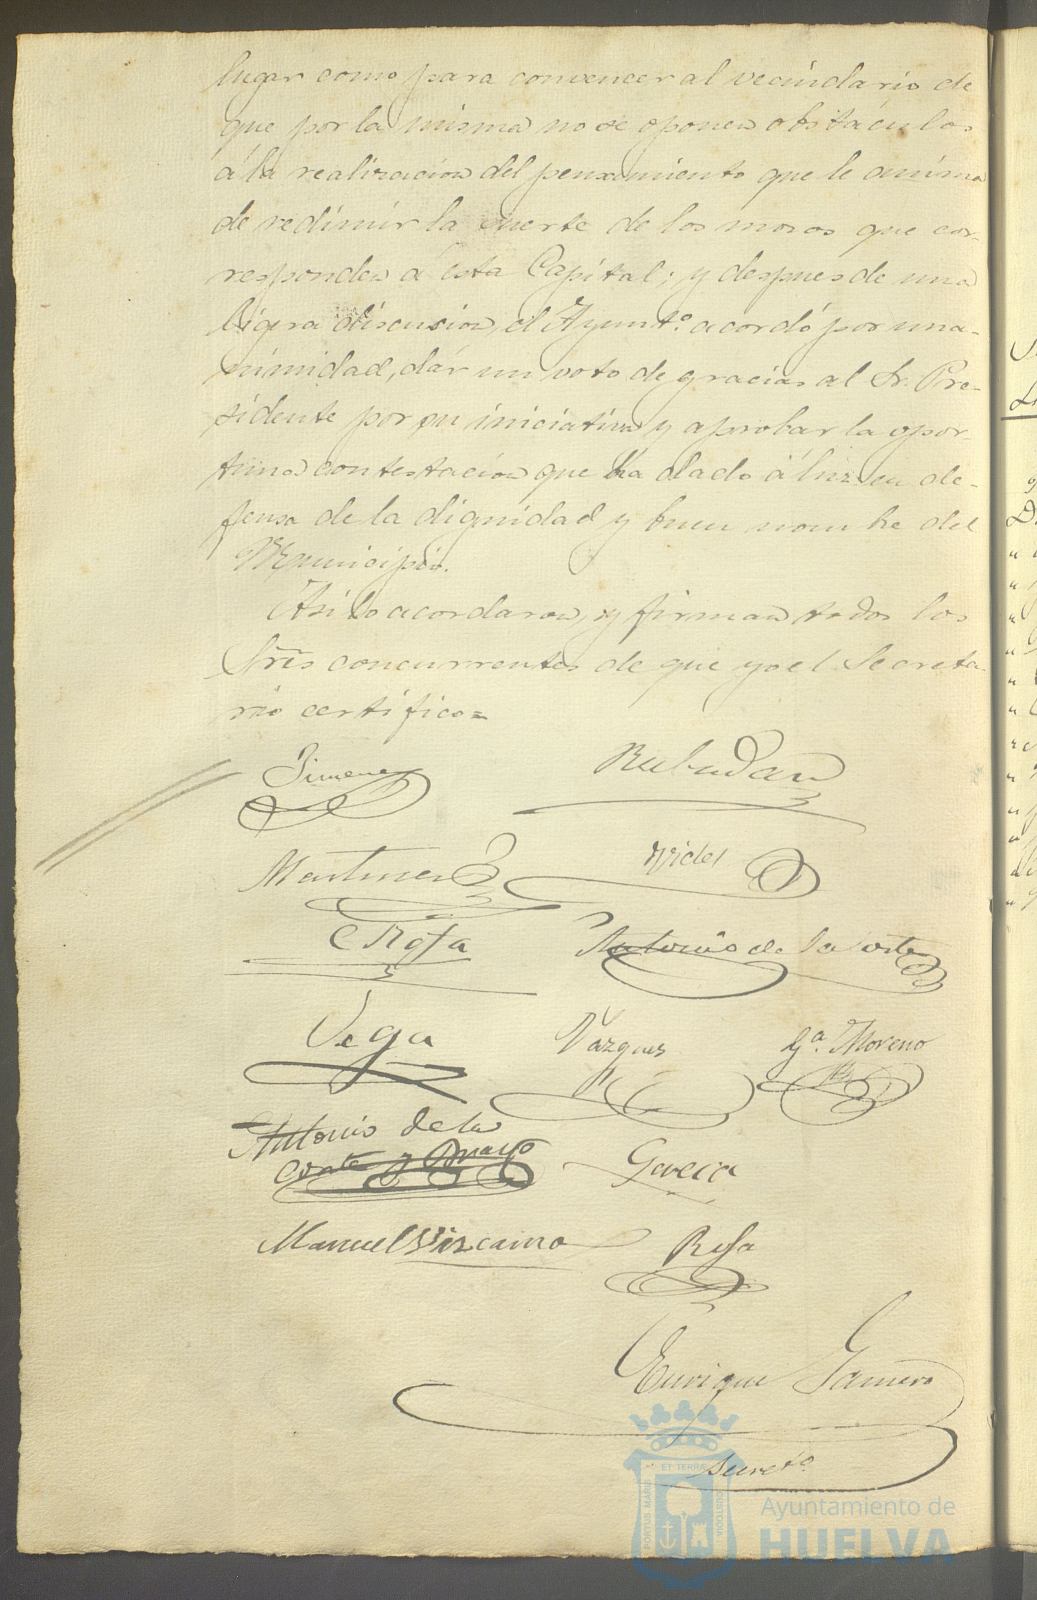 lugar como para convencer al vecindario de
que por la misma no se oponen obstáculos
á la realizacion del pensamiento que le anima
de redimir la suerte de los mozos que cor-
responden á esta Capital; y despues de una
ligera discusion, el Ayunt.º acordó por una-
nimidad, dár un voto de gracias al Sr. Pre-
sidente por su iniciativa y aprobar la opor-
tuna contestacion que ha dado á luz en de-
fensa de la dignidad y buen nombre del
Municipio.
Asi lo acordaron, y firman todos los
Sres concurrentes de que yo el Secreta-
rio certifico=
Jimenez
Martinez Vides
Rofa Antonio de la Corte
Vega Vazquez Gª. Moreno
Antonio de la
Corte y Bravo Garcia
Manuel Vizcaino Rofa
Enrique Gamero
Secretº
ET TERRÆ
PORTUS MARIS CUSTODIA
Ayuntamiento de
HUELVA